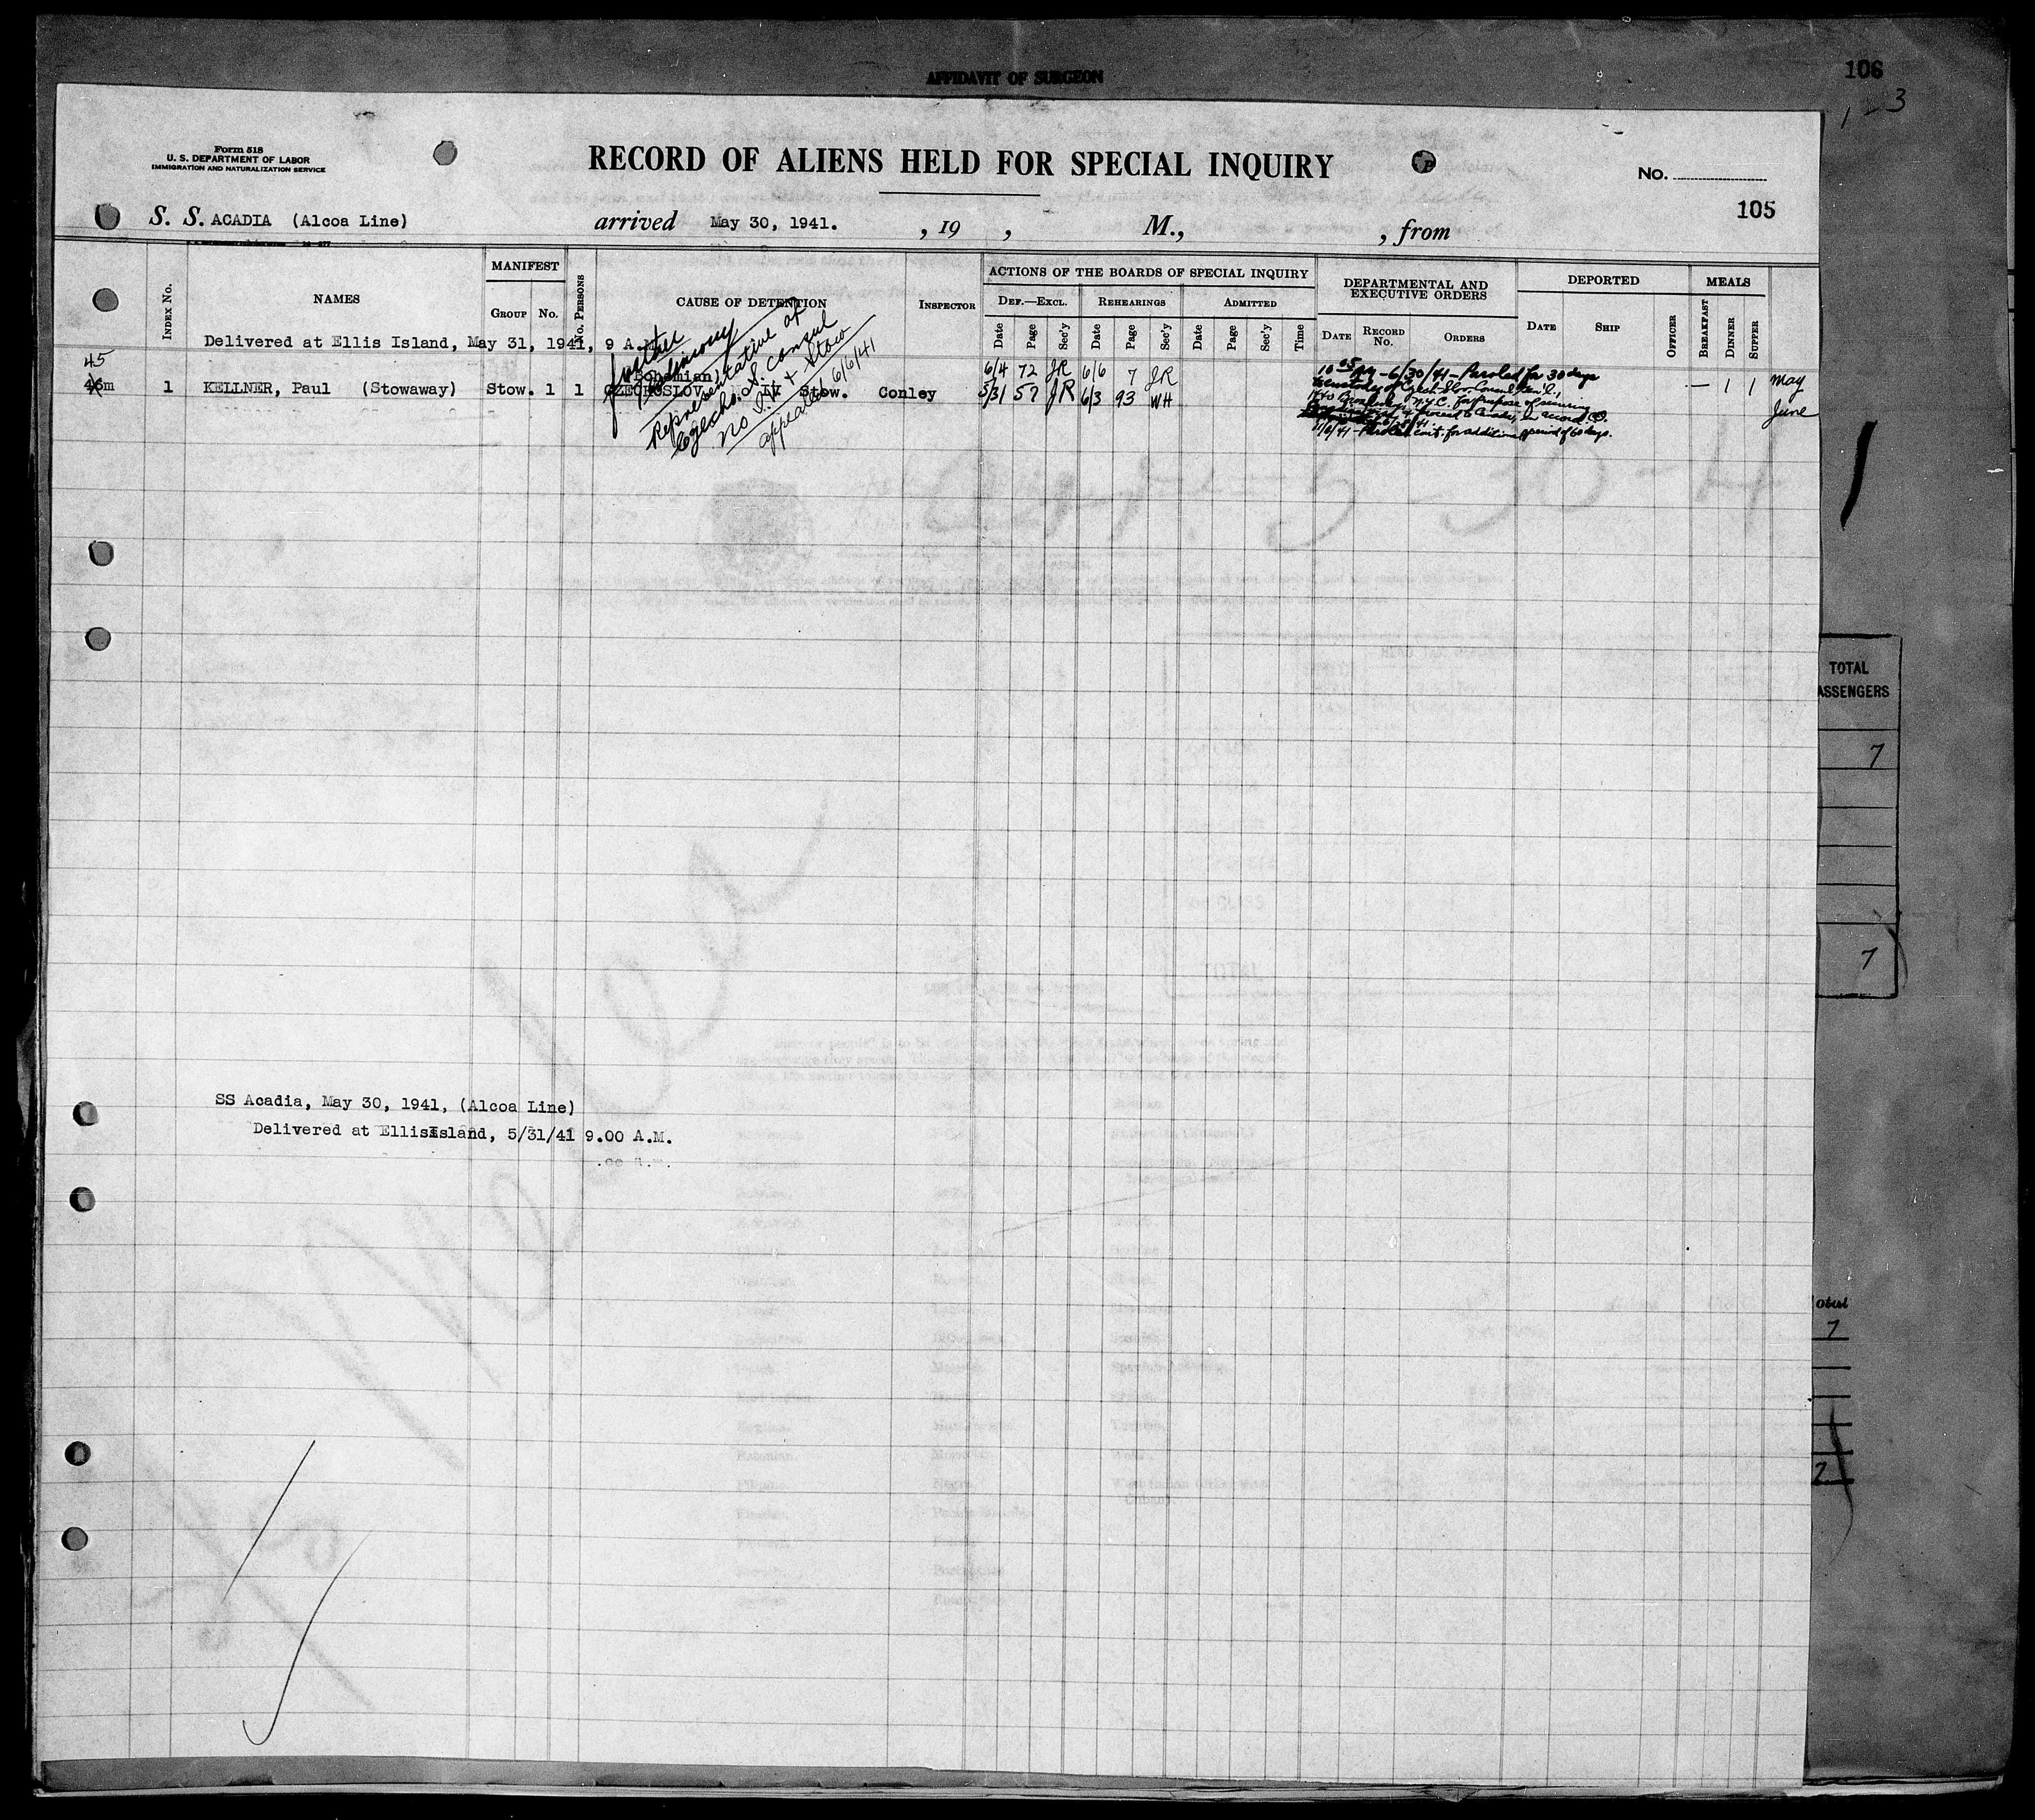 AFFIDAVIT OF SURGEON
106
1-3
Form 518
U. S. DEPARTMENT OF LABOR
IMMIGRATION AND NATURALIZATION SERVICE
RECORD OF ALIENS HELD FOR SPECIAL INQUIRY
P
No.
105
S. S. ACADIA (Alcoa Line) arrived May 30, 1941. , 19 , M., , from
INDEX No.
NAMES
MANIFEST
GROUP No.
No. PERSONS
CAUSE OF DETENTION
INSPECTOR
ACTIONS OF THE BOARDS OF SPECIAL INQUIRY
DEF.—EXCL. REHEARINGS ADMITTED
Date Page Sec'y Date Page Sec'y Date Page Sec'y Time
DEPARTMENTAL AND
EXECUTIVE ORDERS
DATE RECORD No. ORDERS
DEPORTED
DATE SHIP OFFICER
MEALS
BREAKFAST DINNER SUPPER
Delivered at Ellis Island, May 31, 1941, 9 A.
45
m 1 KELLNER, Paul (Stowaway) Stow. 1 1
Bohemian
CZECHOSLOV. Stow. Conley
further
testimony
Representative of
Czecho. S. Consul
no I.V. & Stow
appealed 6/6/41
6/4 72 JR 6/6 7 JR
5/31 57 JR 6/3 93 WH
10 05 AM - 6/30/41 - Paroled for 30 days
to custody of Czech-Slov. Consul Gen'l.,
1440 Broadway, N.Y.C. for purpose of securing
proceed to Canada, in accord.
Paroled cont. for additional period of 60 days.
— 1 1 May
June
TOTAL
ASSENGERS
7
7
SS Acadia, May 30, 1941, (Alcoa Line)
Delivered at Ellis Island, 5/31/41 9.00 A.M.
otal
7
7